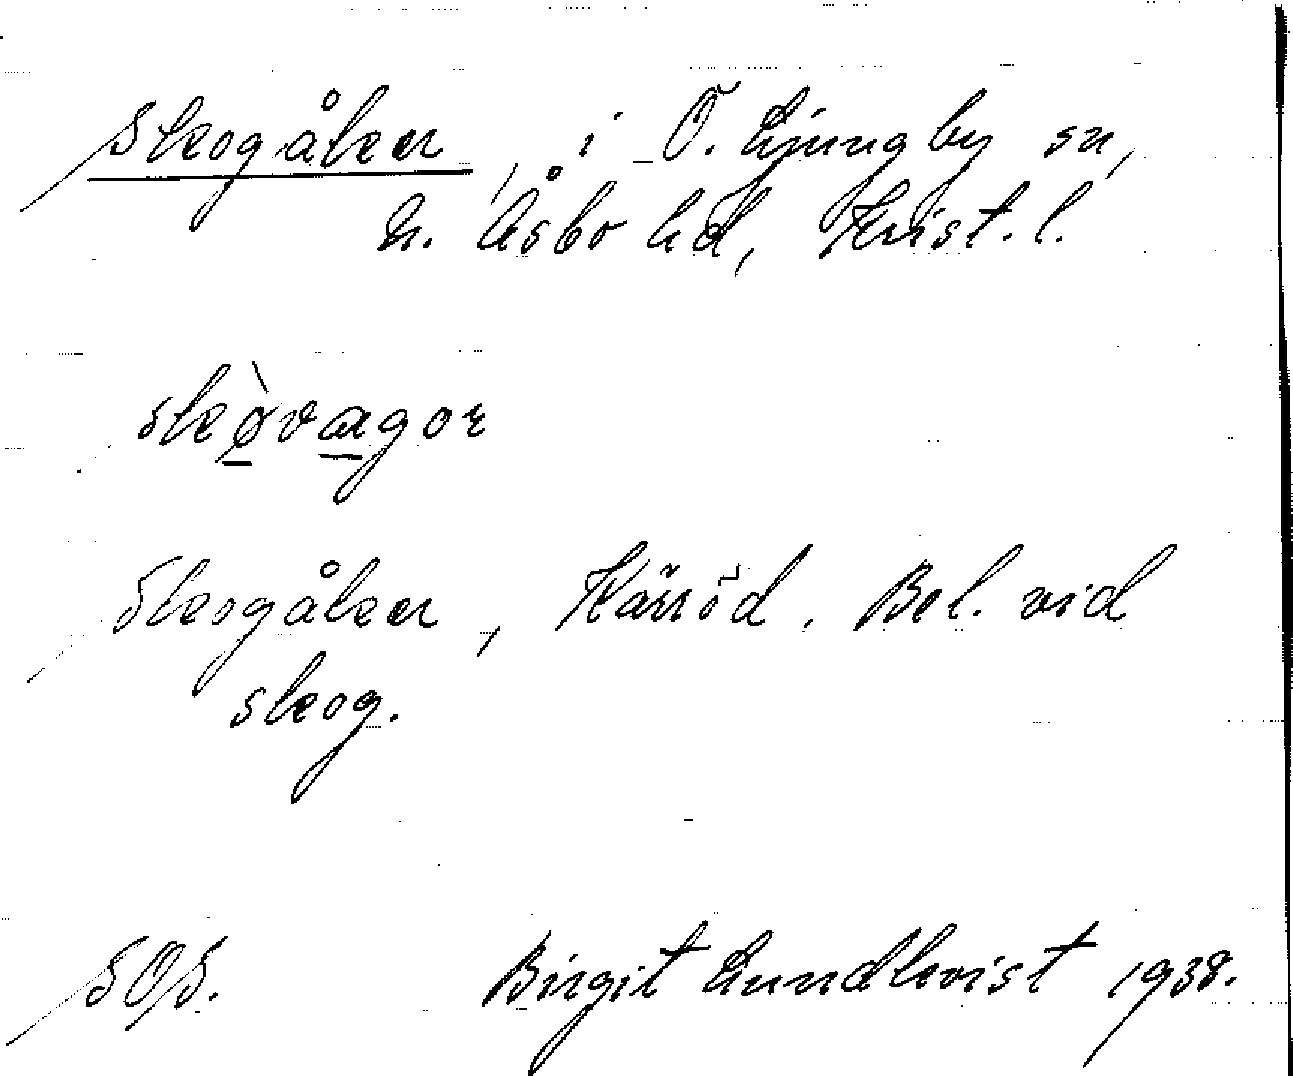 Skogåker, i Ö. Ljungby sn,
N. Åsbo hd, Krist. l.
skø̀vægor
Skogåker, Kärröd. Bel. vid
skog.
SOS. Birgit Lundkvist 1938.